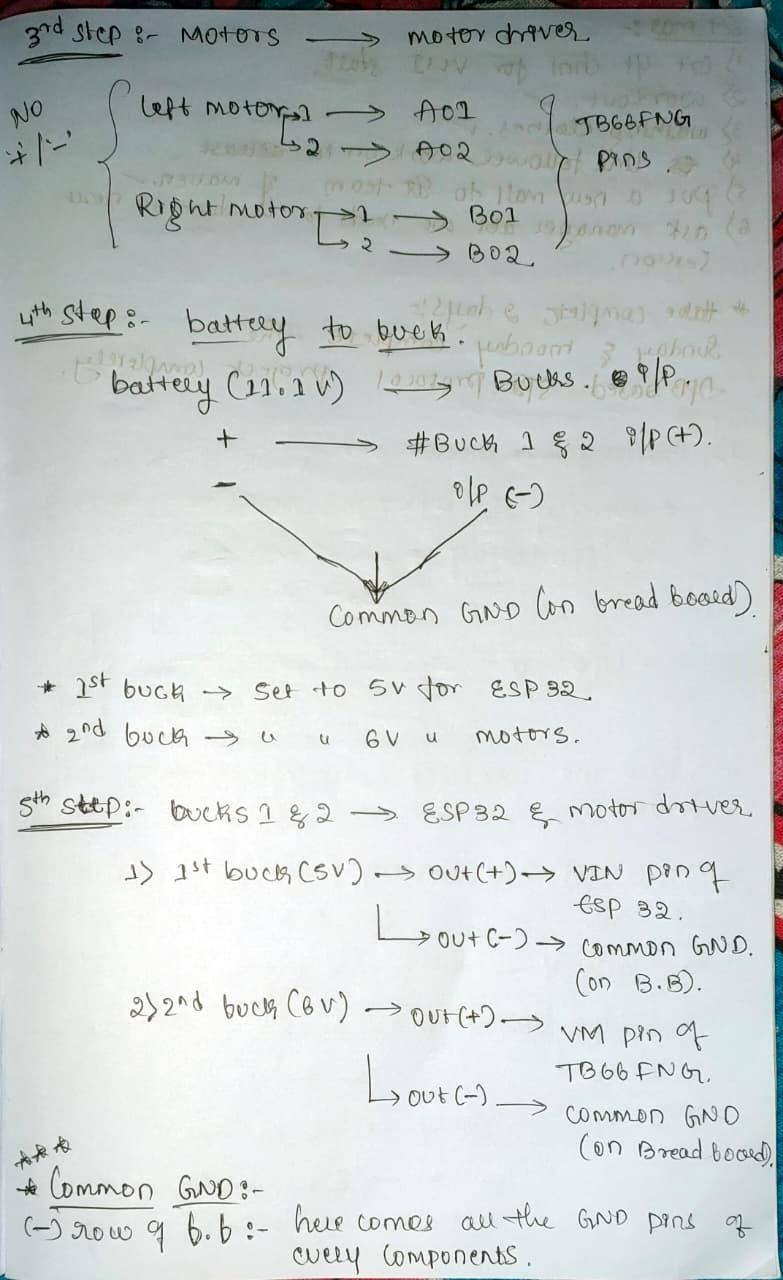 3rd step :- Motors → motor driver
NO
+/-
Left motor → 1 → A01
→ 2 → A02
Right motor → 1 → B01
→ 2 → B02
TB66FNG
pins.
4th step :- battery to buck.
battery (11.1V) → Bucks. i/p.
+ → #Buck 1 & 2 i/p (+).
- i/p (-)
Common GND (on bread board).
* 1st buck → set to 5v for ESP 32
* 2nd buck → " " 6V " motors.
5th step :- bucks 1 & 2 → ESP32 & motor driver
1) 1st buck (5V) → out(+) → VIN pin of
ESP 32.
→ out (-) → common GND.
(on B.B).
2) 2nd buck (6V) → out(+) → VM pin of
TB66FNG.
→ out (-) → common GND
(on Bread board).
***
* Common GND :-
(-) row of b.b :- here comes all the GND pins of
every components.